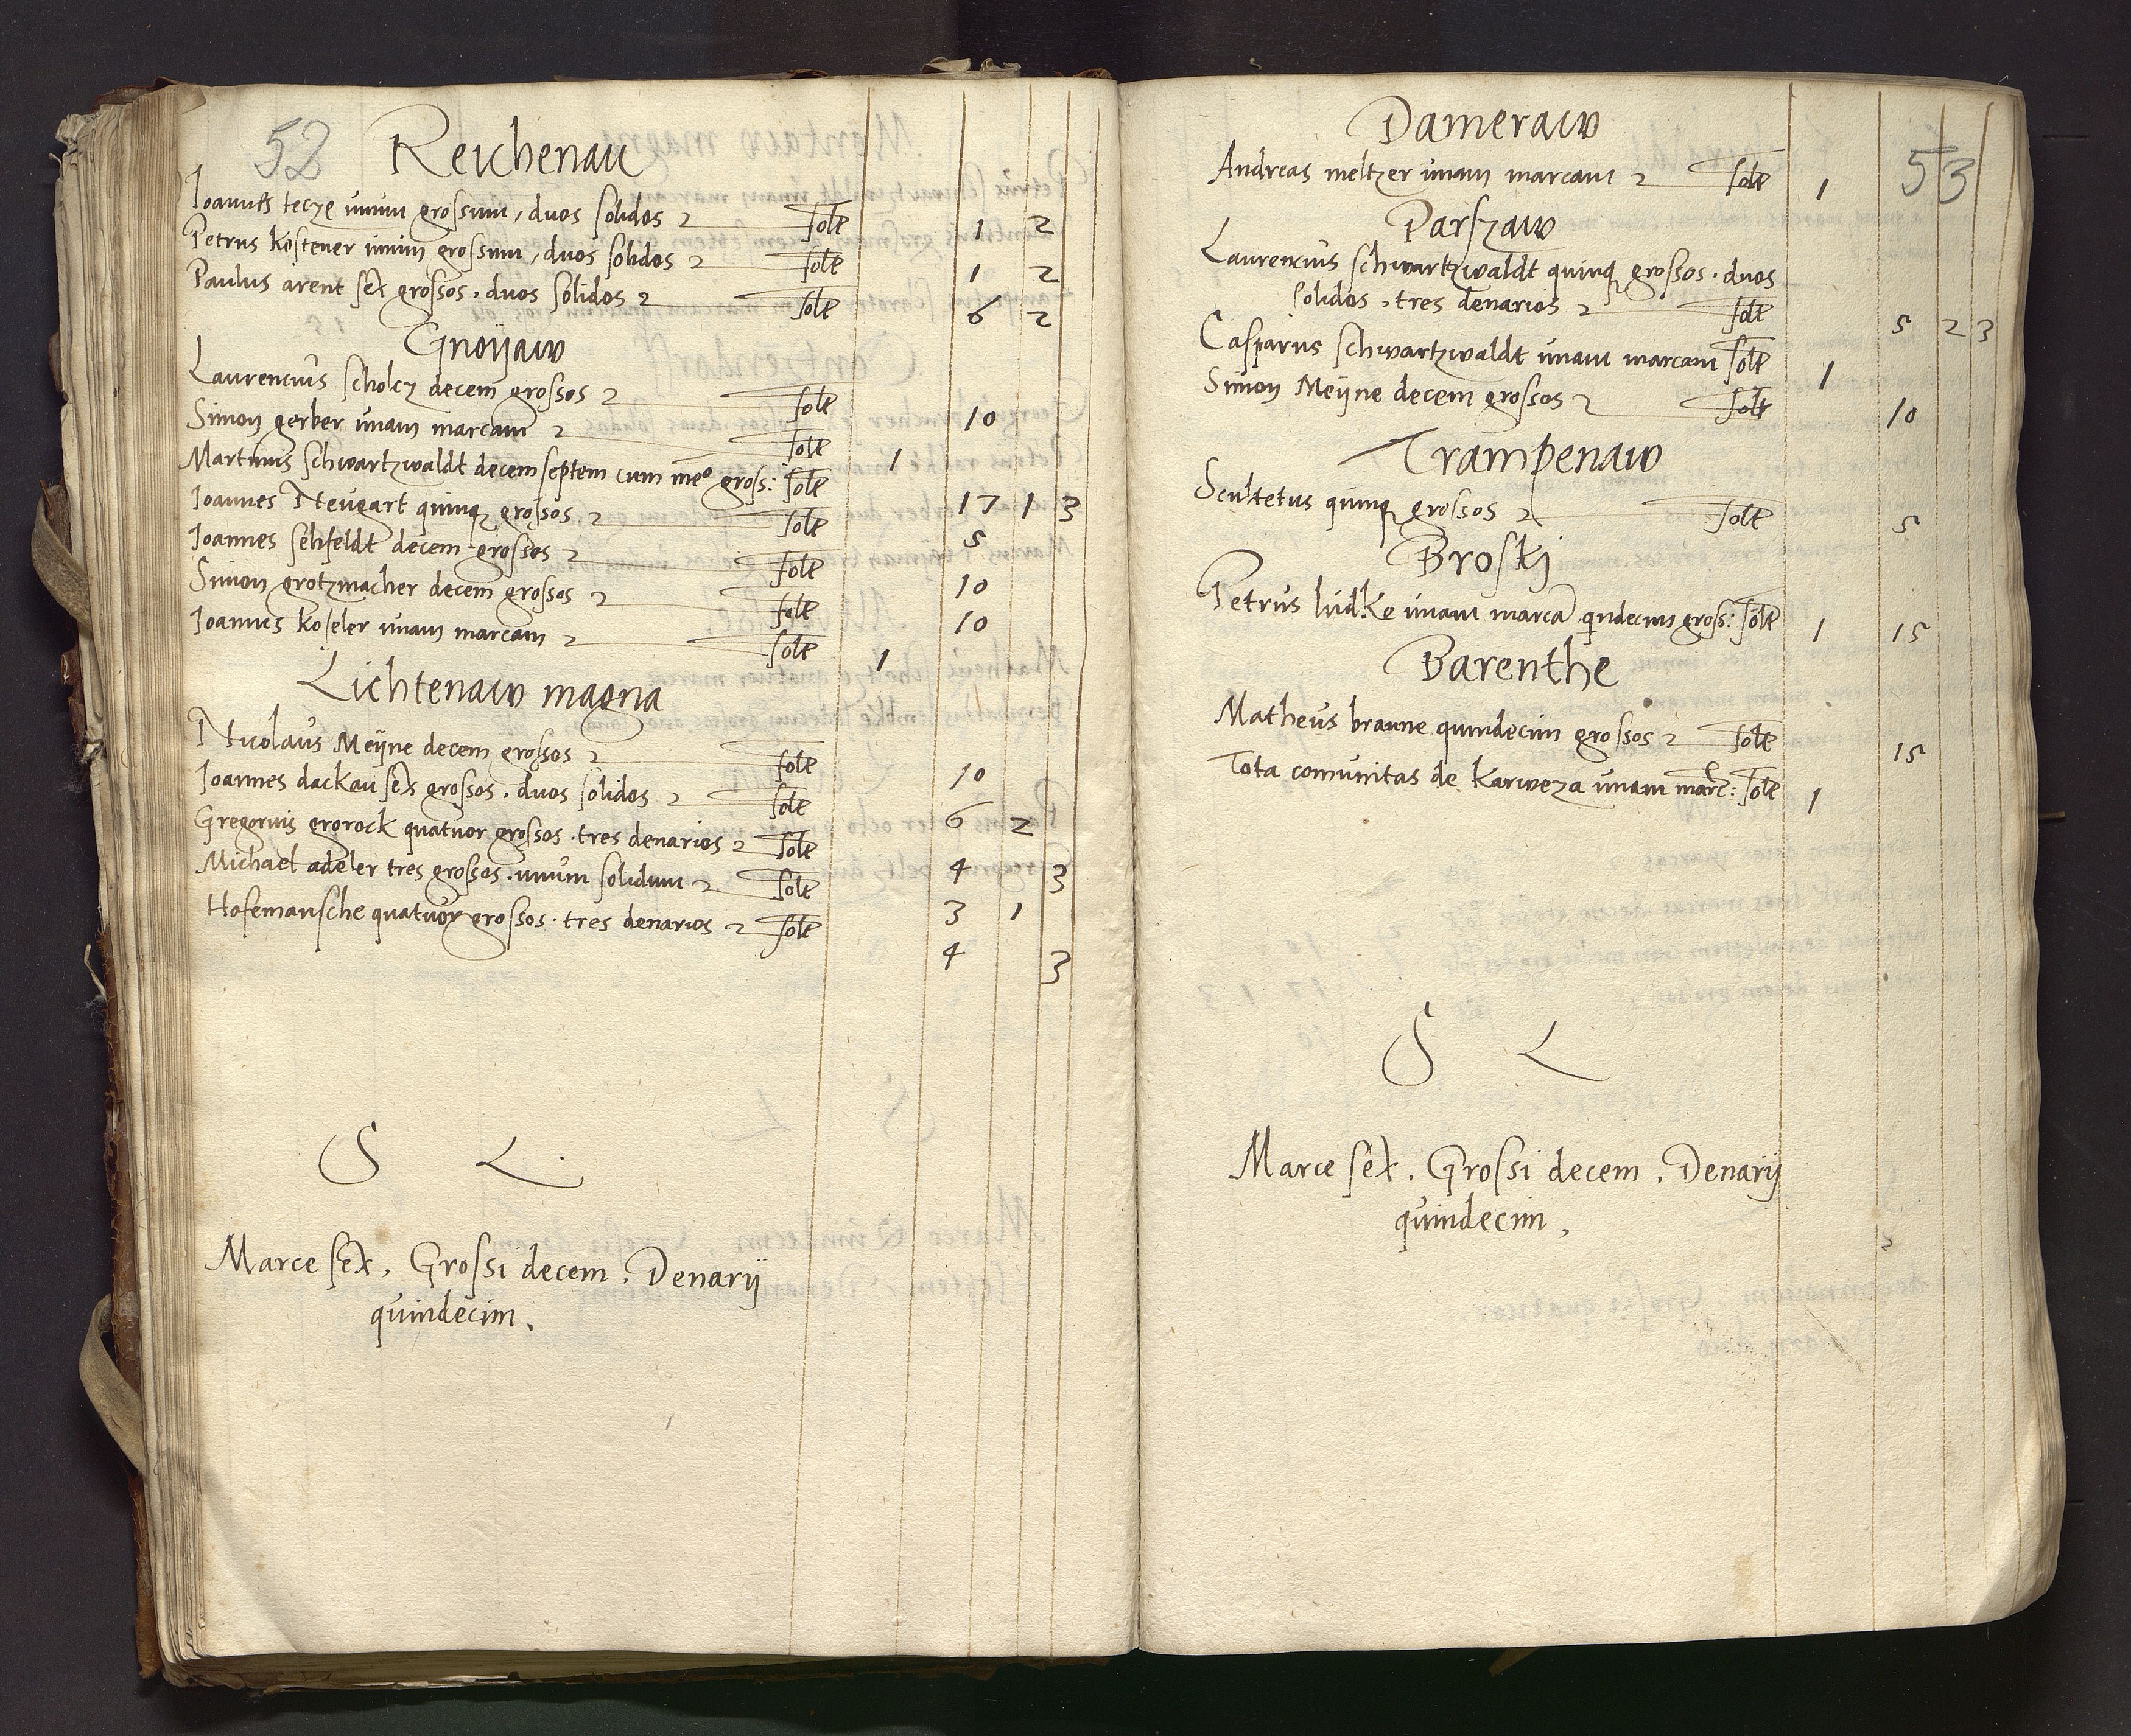 52 Reichenau
Joannes tecze unum grossum, duos solidos solt 1 2
Petrus kostener unum grossum, duos solidos solt 1 2
Paulus arent sex grossos. duos solidos solt 6 2
Gnoijaw
Laurencius scholcz decem grossos solt 10
Simon gerber unam marcam solt 1
Martinus schwartzwaldt decem septem cum meº gross: solt 17 1 3
Joannes Neugart quinq grossos solt 5
Joannes sehfeldt decem grossos solt 10
Simon grotzmacher decem grossos solt 10
Joannes koseler unam marcam solt 1
Lichtenaw magna
Nicolaus Meijne decem grossos solt 10
Joannes dackau sex grossos. duos solidos solt 6 2
Gregorius grorock quatuor grossos. tres denarios solt 4 3
Michael adeler tres grossos. unum solidum solt 3 1
Hofemansche quatuor grossos. tres denarios solt 4 3
S L
Marce sex. Grossi decem. Denarij
quindecim.
53
Dameraw
Andreas meltzer unam marcam solt 1
Parszaw
Laurencius schwartzwaldt quinq grossos. duos
solidos. tres denarios solt 5 2 3
Casparus schwartzwaldt unam marcam solt 1
Simon Meijne decem grossos solt 10
Trampenaw
Scultetus quinq grossos solt 5
Broskj
Petrus lüdke unam marcā quindecim gross: solt 1 15
Barenthe
Matheus braune quindecim grossos solt 15
Tota comunitas de Karweza unam marc: solt 1
S L
Marce sex. Grossi decem. Denarij
quindecim.